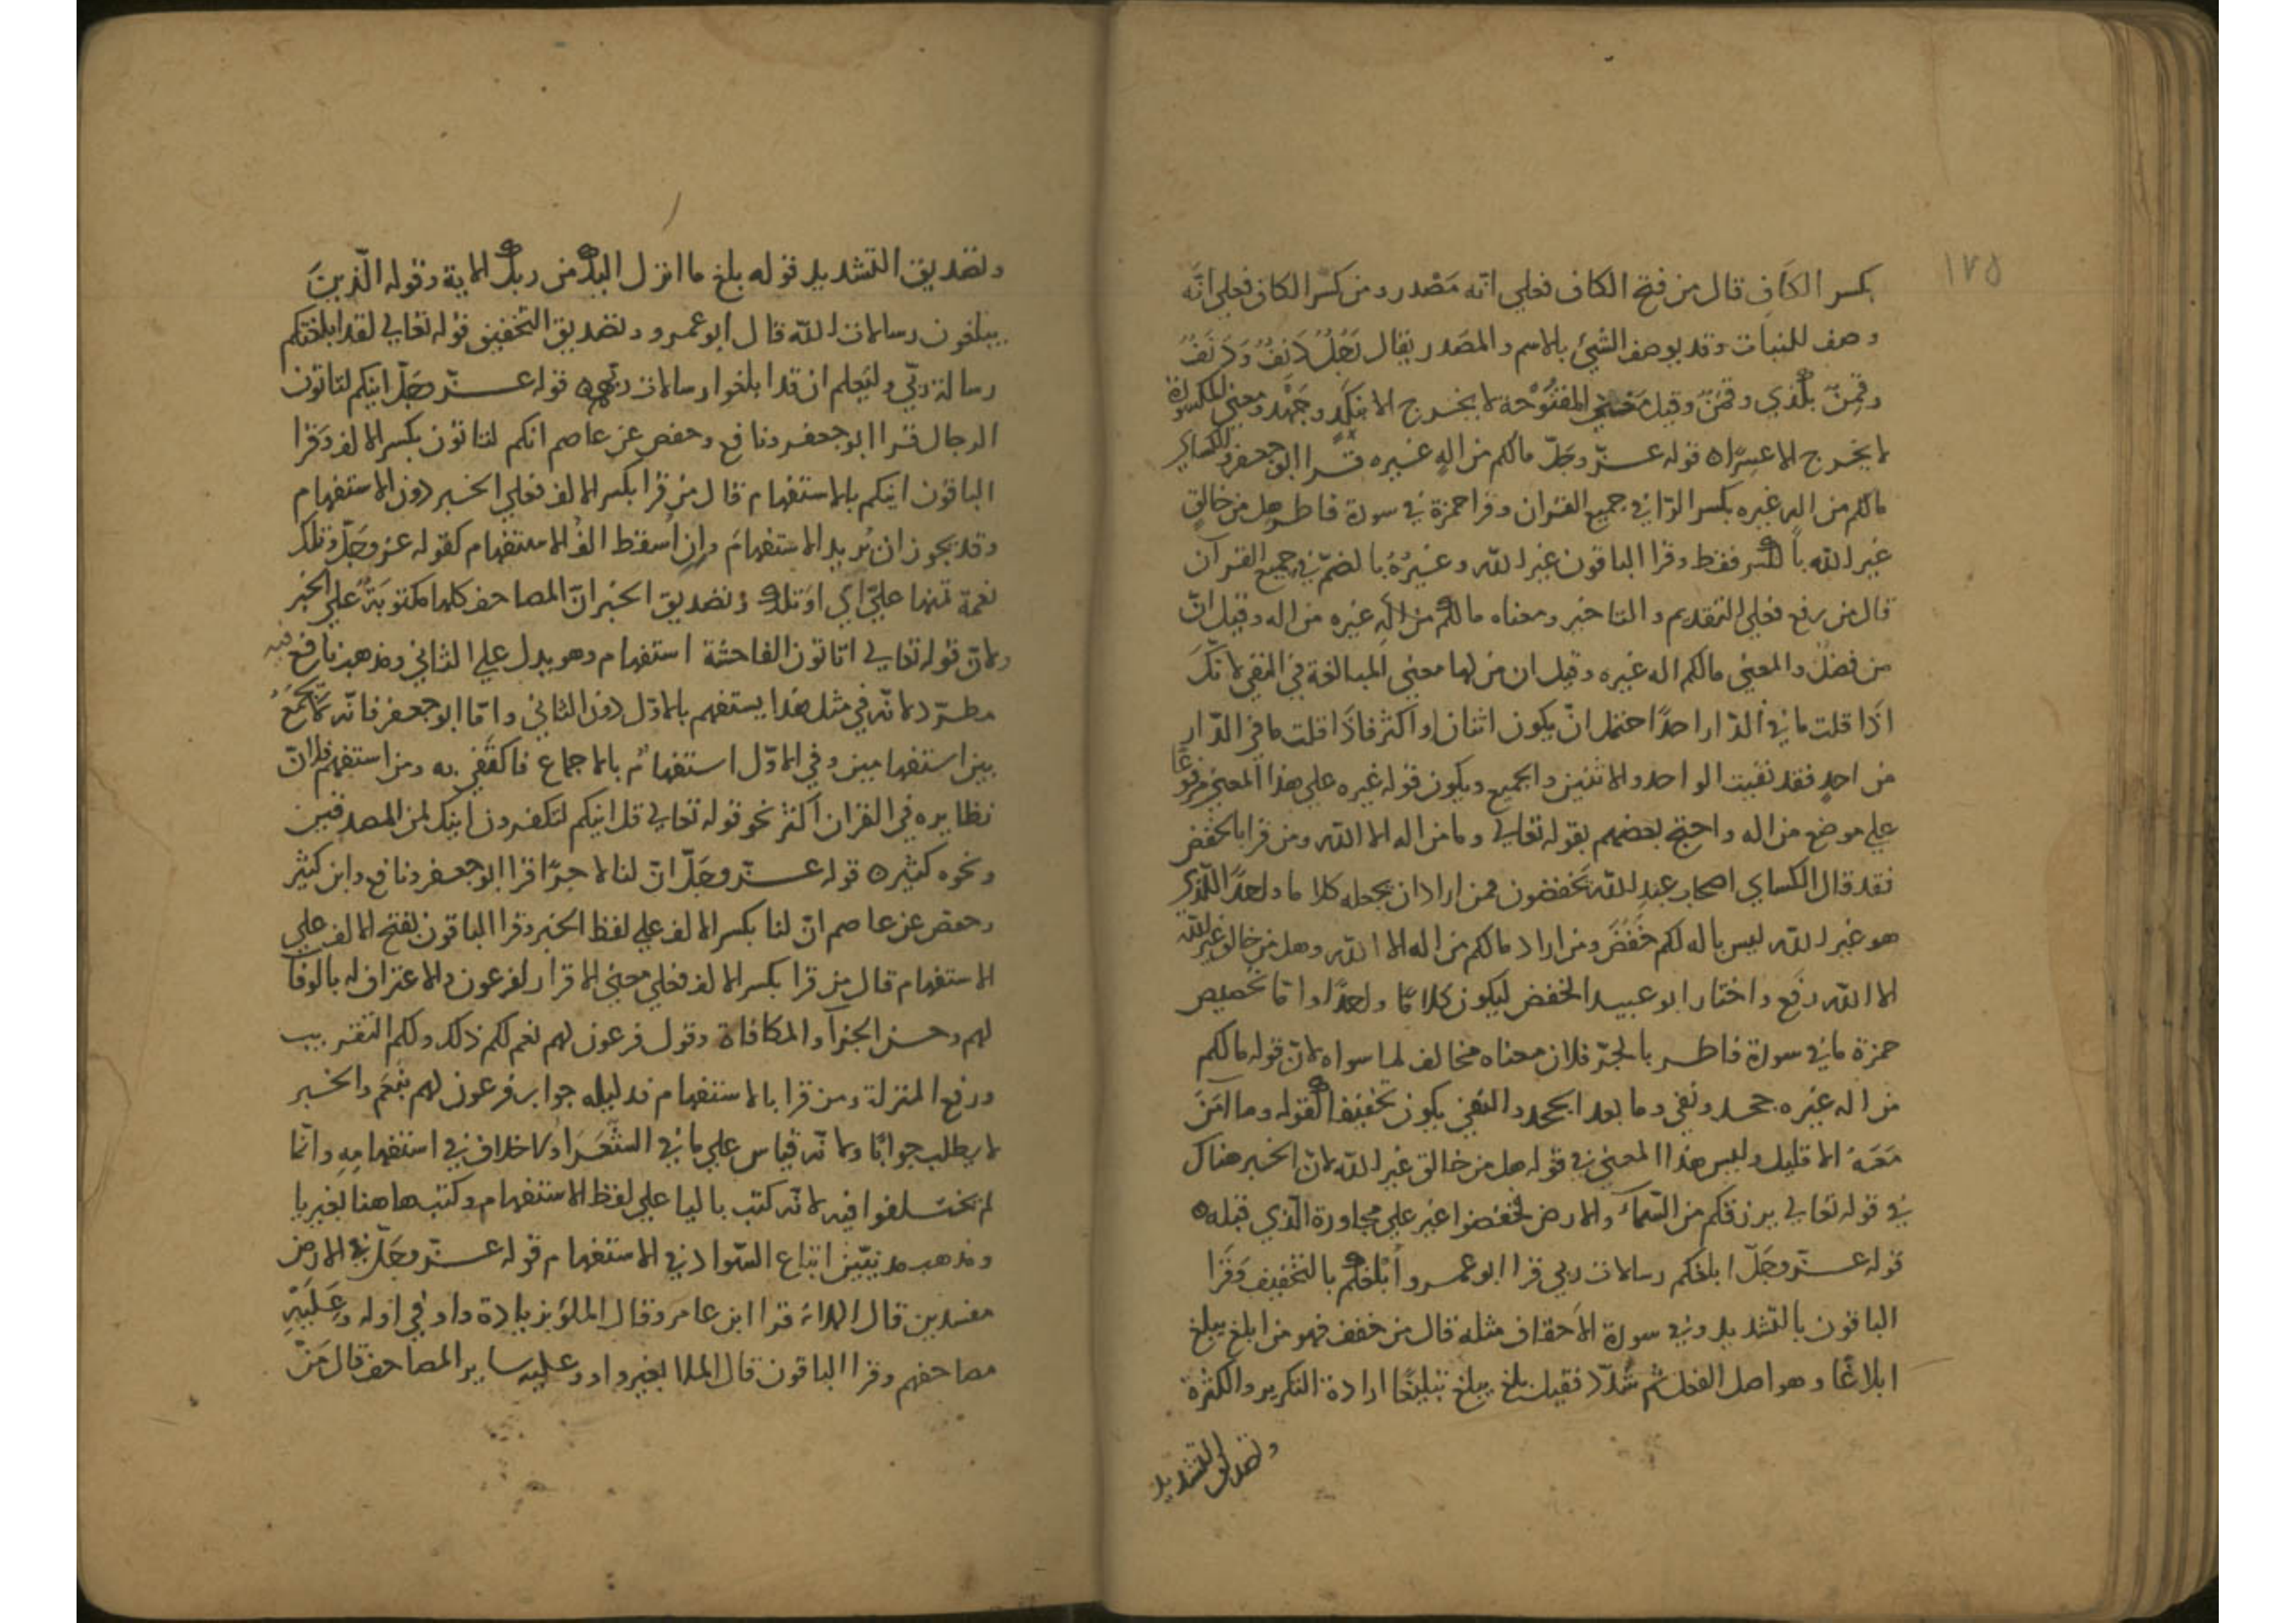 ١٧٥
بكسر الكاف قال من فتح الكاف فعلي انّه مَصْدر ومن كسر الكاف فعلي انّه
وصف للنبات وقد يوصف الشئ بالاسم والمصَدر يقال رَجُلُ دَنِفُ وَدَنَفُ
وقَمِنٌ بلذي وقمَنٌ وقيل معني المفتُوْحة لا يخرج الا بنكَد وجَهْد ومعني المكسورة
لا يخرج الا عسِرًا ٥ قوله عزّ وجَلّ مالكم من الهٍ غيره قرا ابو جعفر والكساي
مالكم من اله غيره بكسر الرّا في جميع القران وقرا حمزة في سورة فاطر هل من خالقٍ
غير الله بالكسر فقط وقرا الباقون غير الله وغيرُهُ بالضمّ في جميع القرآن
قال من رفع فعلي التقديم والتاخير ومعناه مالكم من الهٍ غيره من اله وقيل انّ
من فضلٌ والمعني مالكم اله غيره وقيل ان من لها معني المبالغة في النفي لانّكَ
اذَا قلت ما في الدّار احدًا احتمل انّ يكون اثنان او اكثر فاذَا قلت ما في الدّار
من احدٍ فقد نفيت الواحد والاثنين والجميع ويكون قوله غيره علي هذا المعني مرفوعًا
علي موضع من اله واحتج بعضهم بقوله تعالي وما من اله الا الله ومن قرا بالخفض
فقد قال الكساي اصحاب عبد الله يَخفضون فمن اراد ان يجعله كلاما واحدًا الّذي
هو غير الله ليس باله لكم خَفَضَ ومن اراد مالكم من اله الا الله وهل من خالق غير الله
الا الله رفَع واختار ابو عبيد الخفض ليكون كلامًا واحدًا وامّا تخصيص
حمزة ما في سورة فاطر بالجرّ فلان معناه مخالف لما سواه لانّ قوله مالكم
من اله غيره جحد ونفي وما بعد الجحد والنفي يكون تحقيقا لقوله وما امَنَ
مَعَهُ الا قليل وليس هذا المعني في قوله هل من خالق غير الله لانّ الخبر هناك
في قوله تعالي يرزقكم من السّماءَ والارض فخفضوا غير علي مجاورة الّذي قبله ٥
قوله عزّ وجَلّ ابلغكم رسالات ربي قرا ابو عمرو أُبْلغكم بالتخفيف وقَرا
الباقون بالتشديد وفي سورة الاَحقاف مثله قال من خفف فهو من ابلغ يبلغ
ابلاغًا وهو اصل الفعل ثم شُدّد فقيل بلغ يبلغ تبليغًا ارادة التكرير والكثرة
وتصديق التشديد
وتصديق التشديد قوله بلغ ما انزل اليك من ربك الاية وقوله الّذينَ
يبلغون رسالات الله قال ابو عمرو وتصديق التخفيف قوله تعالي لقد ابلغتكم
رسالة ربّي وليَعلم ان قد ابلغوا رسالات ربهم ٥ قوله عزّ وجَلّ اينكم لتاتون
الرجال قرا ابو جعفر ونافع وحفص عن عاصم انكم لتاتون بكسر الالف وقرا
الباقون اينكم بالاستفهام قال من قرا بكسر الالف فعلي الخبر دون الاستفهام
وقد يجوز ان يُريد الاستفهامَ وان اُسقط الفُ الاستفهام كقوله عز وجَلّ وتلك
نعمة تمنها عليَّ اي اوَتلك وتصديق الخبر انّ المصاحف كلها مكتوبةً علي الخبر
ولانّ قوله تعالي اتاتون الفاحشة استفهام وهو يدل علي الثاني ومذهب نافع فيه
مطرّد لانّه في مثل هذا يستفهم بالاوّل دون الثاني وامّا ابو جعفر فانّه لا يجمَعُ
بين استفهامين وفي الاوّل استفهامٌ بالاجماع فاكتَفي به ومن استفهم فلانّ
نظايره في القران اكثر نحو قوله تعالي قل اينكم لتكفرون اينك لمن المصدقين
ونحوه كثيره قوله عزّ وجَلّ انّ لنا لاجرًا قرا ابو جعفر ونافع وابن كثير
وحفص عن عاصم انّ لنا بكسر الالف علي لفظ الخبر وقرا الباقون بفتح الالف علي
الاستفهام قال من قرا بكسر الالف فعلي معني الاقرار لفرعون والاعتراف له بالوفا
لهم وحسن الجزآ والمكافاة وقول فرعون لهم نعم لكم ذلك ولكم التقريب
ورفع المنزلة ومن قرا بالاستفهام فدليله جواب فرعون لهم بنَعَم والخبر
لا يطلب جوابًا ولانّه قياس علي ما في الشّعَرَا ولا خلاف في استفهامِهِ وانّما
لم يختلفوا فيه لانّه كتب باليا علي لفظ الاستفهام وكتب هاهنا بغير يا
ومذهب مدنيّين اتباع السّواد في الاستفهام قوله عزّ وجَلّ في الارض
مفسدين قال الملا قرا ابن عامر وقال الملؤ بزيادة واو في اوله وعَلَيْهِ
مصاحفهم وقرا الباقون قال الملا بغير واو وعليه ساير المصاحف قال مَنْ